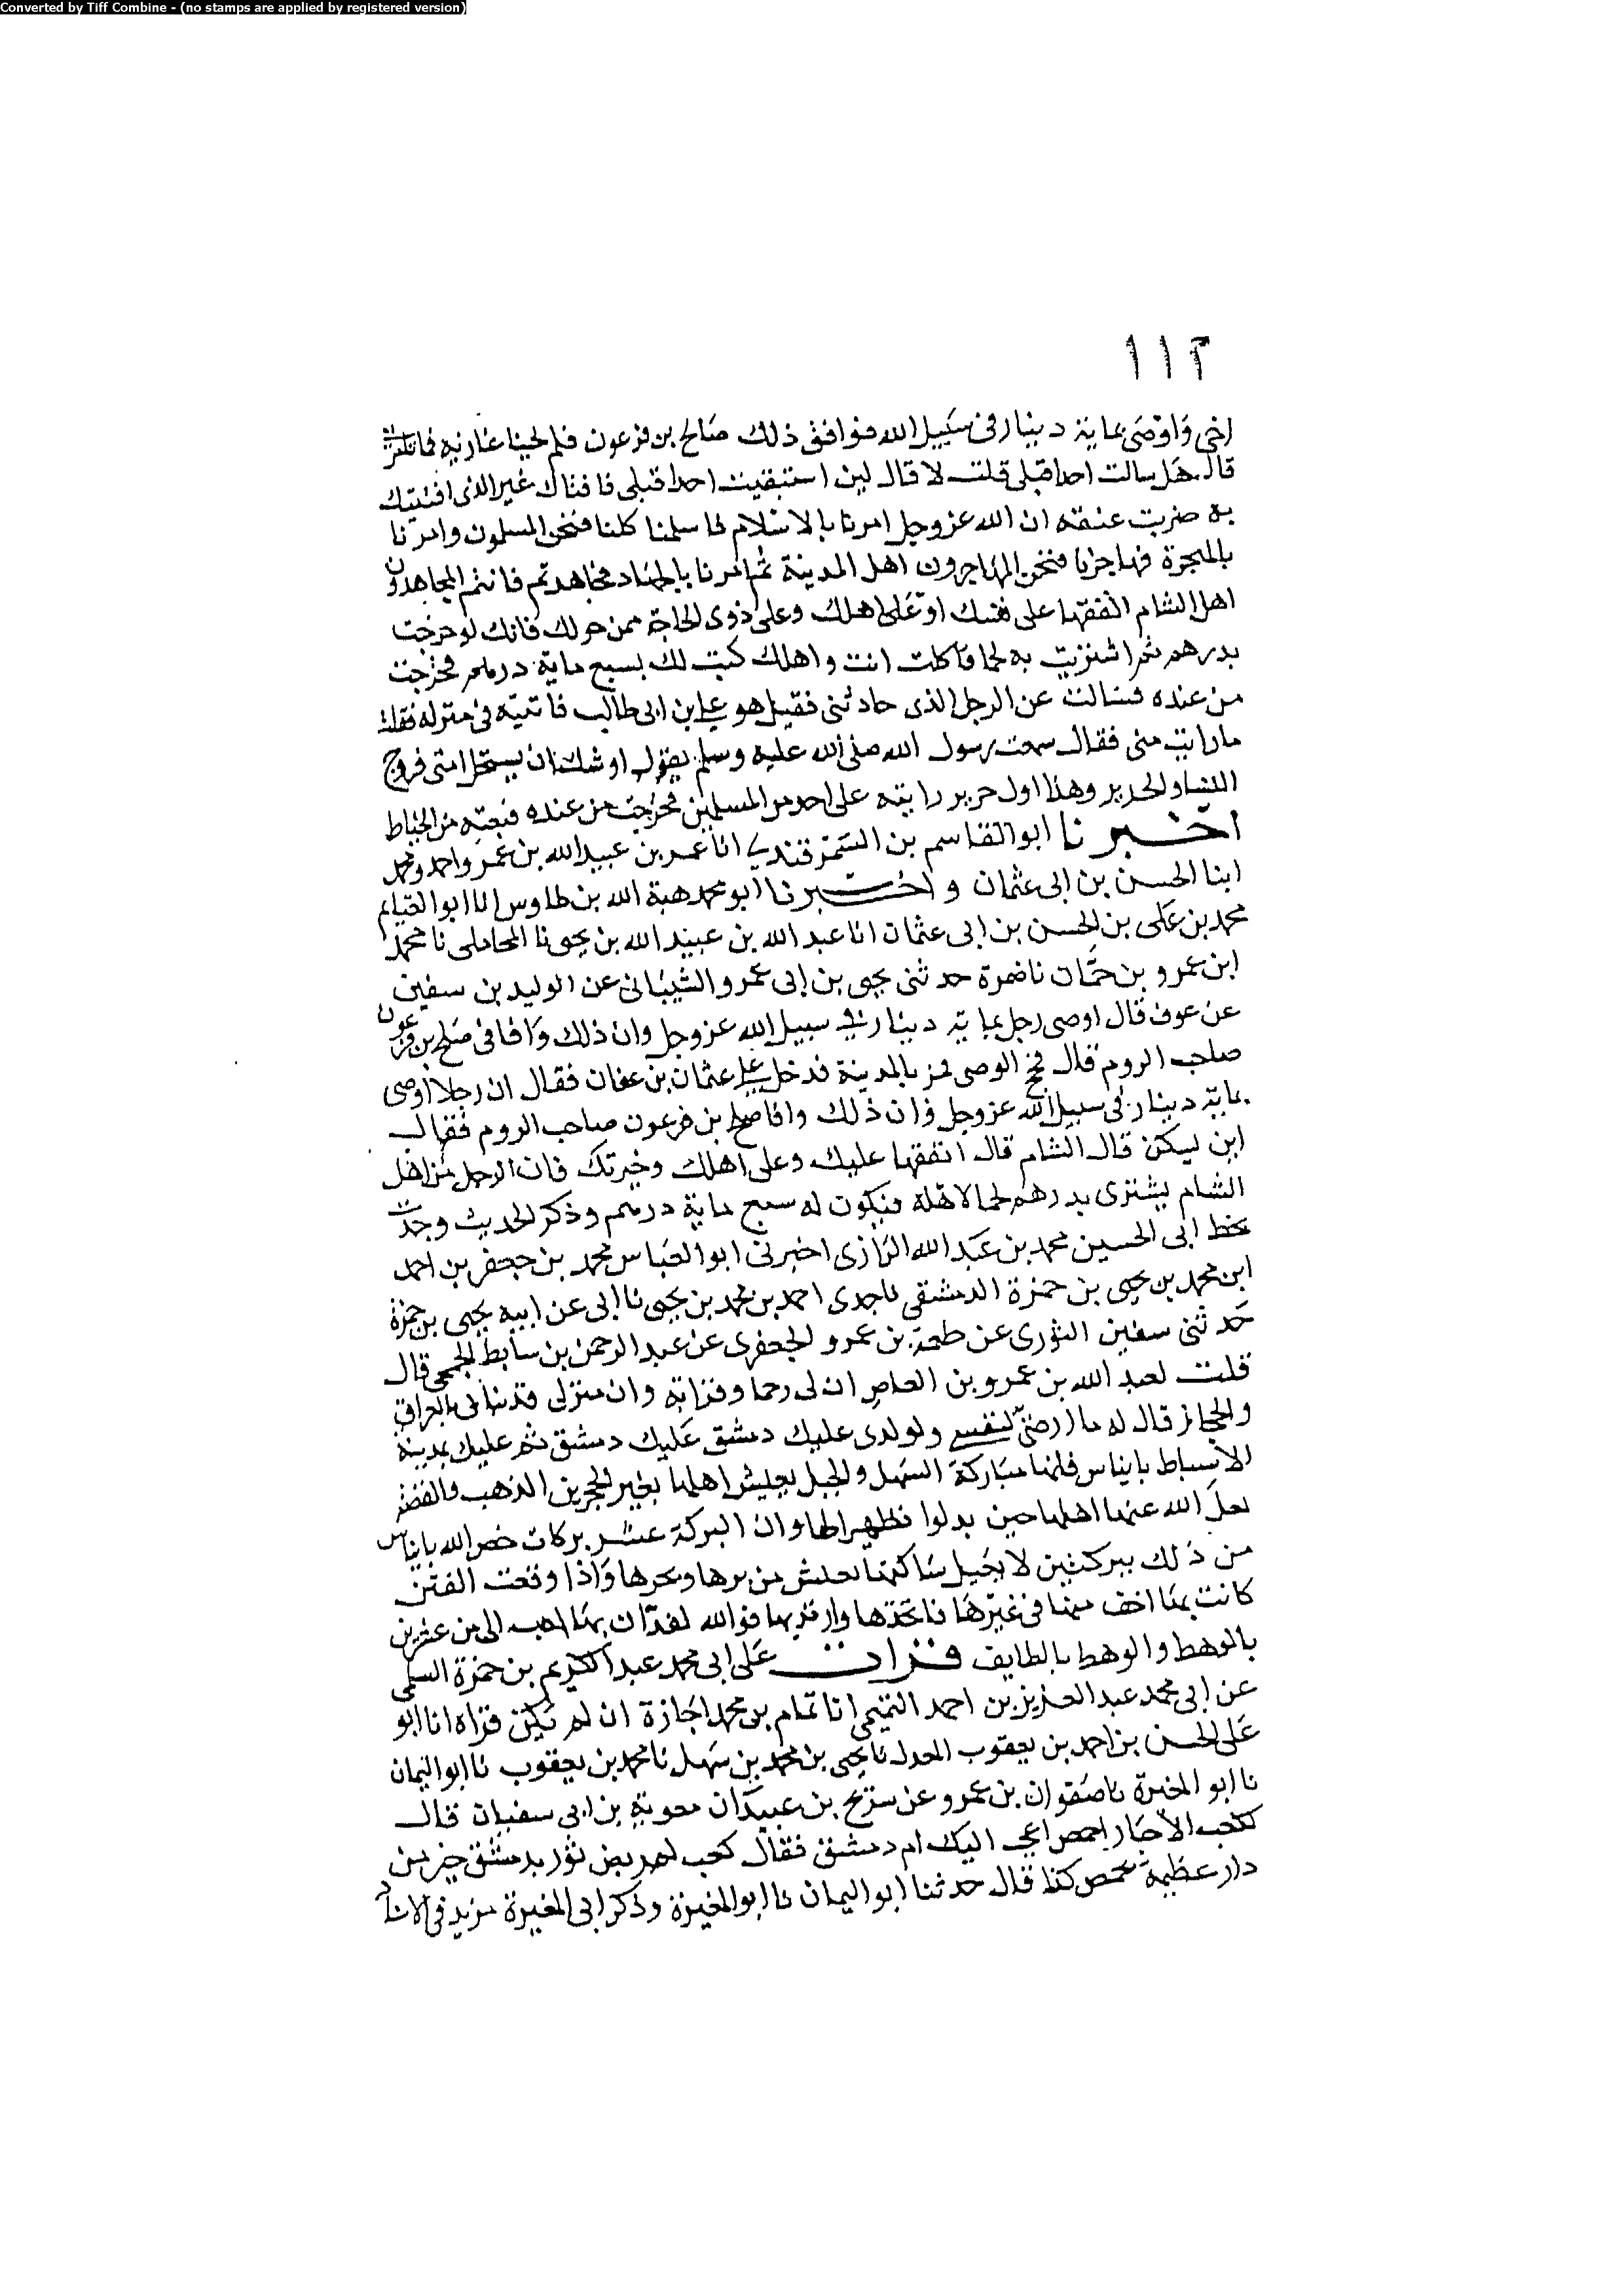 Converted by Tiff Combine - (no stamps are applied by registered version)
١١٢
اخى واوصى بماية دينار فى سبيل الله فوافق ذلك صالح بن فرعون فلم يجينا غازية فما تامر
قال هل سالت احدا قبلى قلت لا قال لين استبقيت احدا قبلى فافتاك غير الذى افتيتك
به ضربت عنقه ان الله عز وجل امرنا بالاسلام فاسلمنا كلنا فنحن المسلمون وامرنا
بالهجرة فهاجرنا فنحن المهاجرون اهل المدينة ثم امرنا بالجهاد فجاهدتم فانتم المجاهدون
اهل الشام انفقها على نفسك او على اهلك وعلى ذوى الحاجة ممن حولك فانك لو خرجت
بدرهم ثم اشتريت به لحما فاكلت انت واهلك كتب لك بسبع ماية درهم فخرجت
من عنده فسالت عن الرجل الذى حادثنى فقيل هو على بن ابى طالب فاتيته فى منزله فقلت
ما رايت منى فقال سمعت رسول الله صلى الله عليه وسلم يقول اوشك ان يستحل امتى فروج
النسا والحرير وهذا اول حرير رايته على احد من المسلمين فخرجت من عنده فبعته من الخياط
اخبرنا ابو القاسم بن السمرقندى انا عمر بن عبيد الله بن عمر واحمد ومحمد
ابنا الحسن بن ابى عثمان و اخبرنا ابو محمد هبة الله بن طاوس انا ابو الغنايم
محمد بن على بن الحسن بن ابى عثمان انا عبد الله بن عبيد الله بن يحيى نا المحاملى نا محمد
ابن عمرو بن حنان نا ضمرة حدثنى يحيى بن ابى عمرو الشيبانى عن الوليد بن سفين
عن عوف قال اوصى رجل بماية دينار فى سبيل الله عز وجل وان ذلك وافا فى صلح بن فرعون
صاحب الروم قال فحج الوصى فمر بالمدينة فدخل على عثمان بن عفان فقال ان رجلا اوصى
بماية دينار فى سبيل الله عز وجل وان ذلك وافا صلح بن فرعون صاحب الروم فقال
اين ليسكن قال الشام قال انفقها عليك وعلى اهلك وخيرتك فان الرجل من اهل
الشام يشترى بدرهم لحما لاهله فيكون له سبع ماية درهم وذكر الحديث وجدت
بخط ابى الحسين محمد بن عبد الله الرازى اخبرنى ابو العباس محمد بن جعفر بن احمد
ابن محمد بن يحيى بن حمزة الدمشقى نا جدى احمد بن محمد بن يحيى نا ابى عن ابيه يحيى بن حمزة
حدثنى سفين الثورى عن طعمة بن عمرو الجعفرى عن عبد الرحمن بن سابط الجمحى قال
قلت لعبد الله بن عمرو بن العاص ان لى رحما وقرابة وان منزلى قد نبا بى بالعراق
والحجاز قال له ما ارضى لنفسى ولولدى عليك دمشق عليك دمشق ثم عليك بمدينة
الاسباط بانياس فانها مباركة السهل والجبل يعيش اهلها بغير الحجرين الذهب والفضة
الله عنها اهلها حين بدلوا تطهيرا لها وان البركة عشر بركات خص الله بانياس
من ذلك ببركتين لا يخيل ساكنها يعيش من برها وبحرها واذا وقعت الفتن
كانت بها اخف منها فى غيرها فاتخذها وارتد بها فوالله لفدان بها احب الى من عشرين
بالوهط والوهط بالطايف قرات على ابى محمد عبد الكريم بن حمزة السلمى
عن ابى محمد عبد العزيز بن احمد التميمى انا تمام بن محمد اجازة ان لم تكن قراة انا ابو
على الحسن بن احمد بن يعقوب المعدل نا يحيى بن محمد بن سهل نا محمد بن يعقوب نا ابو اليمان
نا ابو المغيرة نا صفوان بن عمرو عن سريح بن عبيد ان معوية بن ابى سفيان قال
لكعب الاحبار احمص اعجب اليك ام دمشق فقال كعب لمربض ثور بدمشق خير من
دار عظيمة بحمص كذا قال حدثنا ابو اليمان نا ابو المغيرة وذكر ابى المغيرة مزيد فى الاسناد